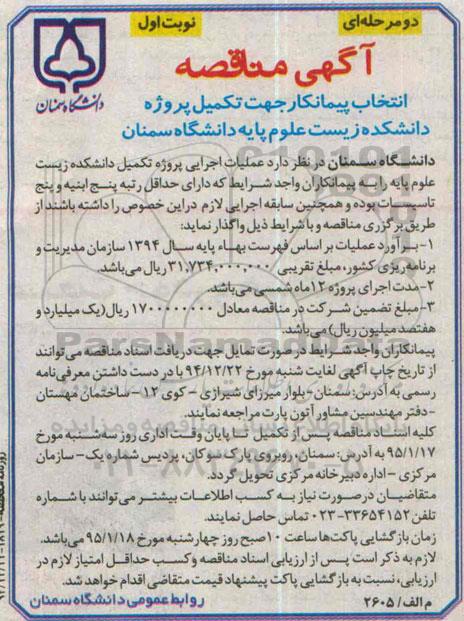 دومرحله‌ای
نوبت اول
دانشگاه سمنان
آگهی مناقصه
انتخاب پیمانکار جهت تکمیل پروژه
دانشکده زیست علوم پایه دانشگاه سمنان
دانشگاه سمنان در نظر دارد عملیات اجرایی پروژه تکمیل دانشکده زیست
علوم پایه را به پیمانکاران واجد شرایط که دارای حداقل رتبه پنج ابنیه و پنج
تاسیسات بوده و همچنین سابقه اجرایی لازم دراین خصوص را داشته باشند از
طریق برگزری مناقصه و با شرایط ذیل واگذار نماید:
۱-برآورد عملیات بر اساس فهرست بهاء پایه سال ۱۳۹۴ سازمان مدیریت و
برنامه‌ریزی کشور، مبلغ تقریبی ۳۱,۷۳۴,۰۰۰,۰۰۰ ریال می‌باشد.
۲-مدت اجرای پروژه ۱۲ماه شمسی می‌باشد.
۳-مبلغ تضمین شرکت در مناقصه معادل ۱۷۰۰۰۰۰۰۰۰ ریال(یک میلیارد و
هفتصد میلیون ریال) می‌باشد.
پیمانکاران واجد شرایط در صورت تمایل جهت دریافت اسناد مناقصه می‌توانند
از تاریخ چاپ آگهی لغایت شنبه مورخ ۹۴/۱۲/۲۲ با در دست داشتن معرفی‌نامه
رسمی به آدرس: سمنان - بلوار میرزای شیرازی - کوی ۱۲ - ساختمان مهستان
-دفتر مهندسین مشاور آتون پارت مراجعه نمایند.
کلیه اسناد مناقصه پس از تکمیل تا پایان وقت اداری روز سه‌شنبه مورخ
۹۵/۱/۱۷ به آدرس: سمنان، روبروی پارک سوکان، پردیس شماره یک- سازمان
مرکزی - اداره دبیرخانه مرکزی تحویل گردد.
متقاضیان درصورت نیاز به کسب اطلاعات بیشتر می‌توانند با شماره
تلفن ۳۳۶۵۴۱۵۲-۰۲۳ تماس حاصل نمایند.
زمان بازگشایی پاکت‌ها ساعت ۱۰صبح روز چهارشنبه مورخ ۹۵/۱/۱۸ می‌باشد.
لازم به ذکر است پس از ارزیابی اسناد مناقصه و کسب حداقل امتیاز لازم در
ارزیابی، نسبت به بازگشایی پاکت پیشنهاد قیمت متقاضی اقدام خواهد شد.
م الف/ ۲۶۰۵
روابط عمومی دانشگاه سمنان
ParsNamadData